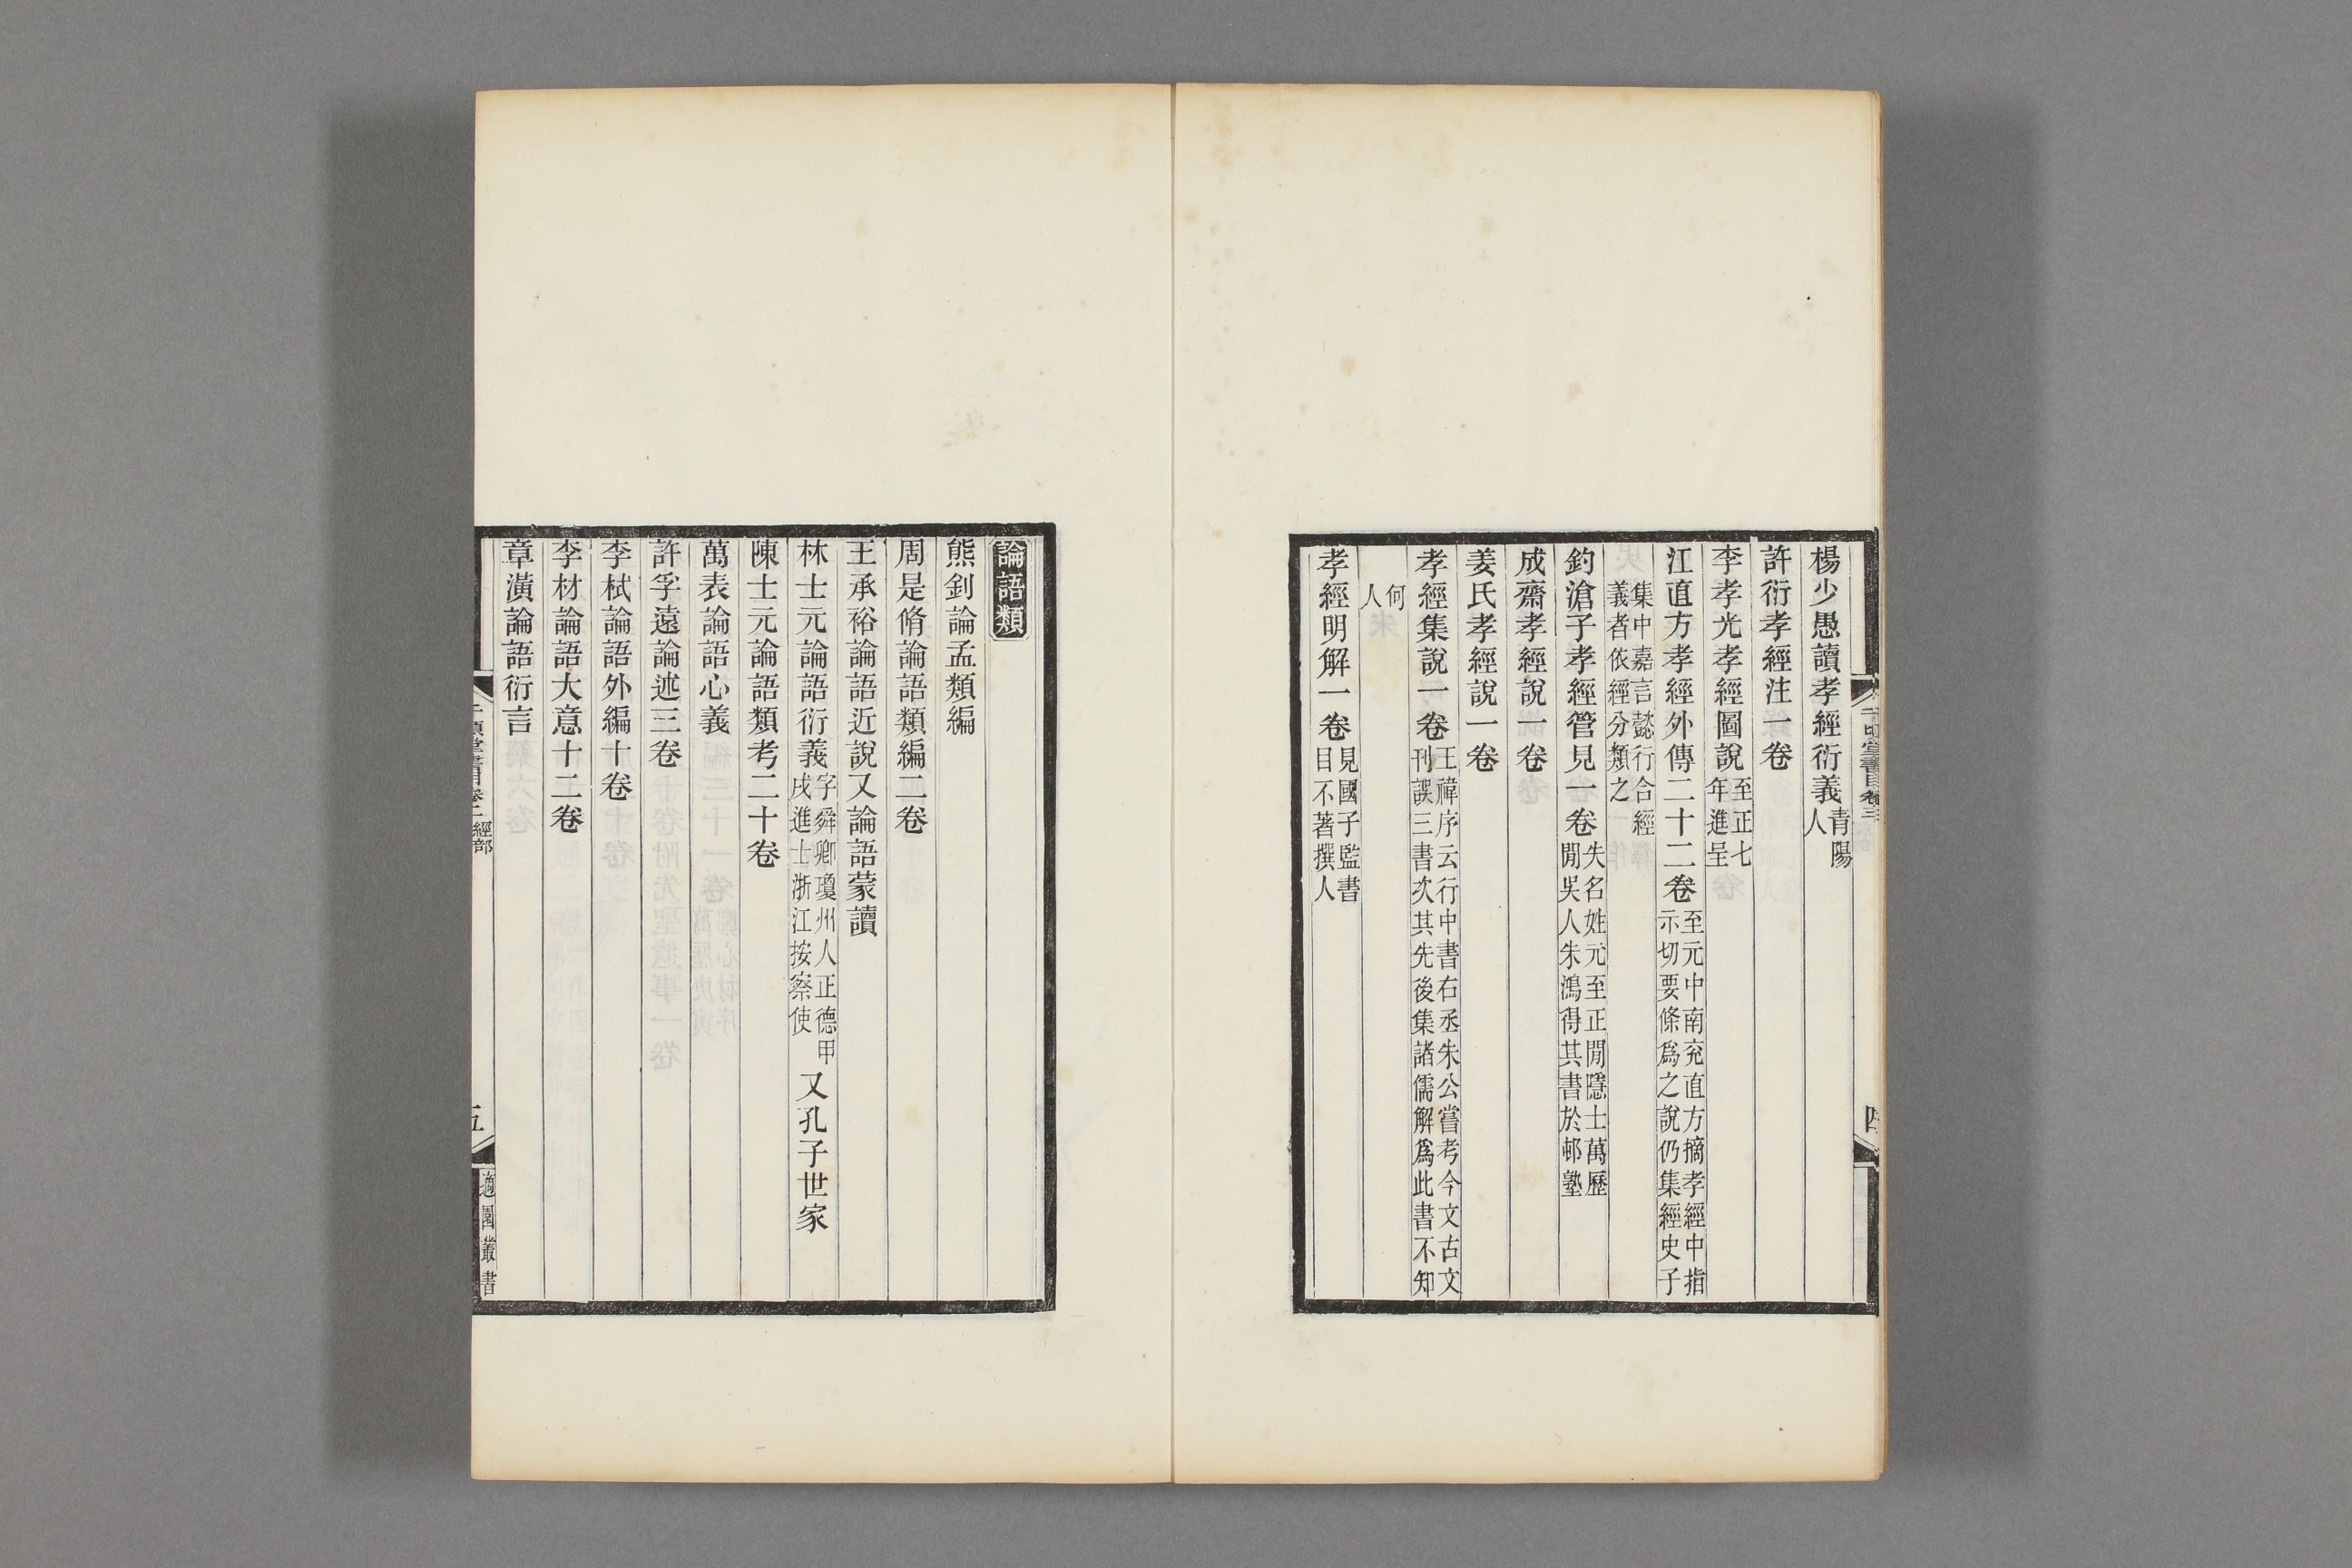 楊少愚讀孝經衍義青陽人
許衍孝經注一卷
李孝光孝經圖說至正七年進呈
江直方孝經外傳二十二卷至元中南充直方摘孝經中指示切要條爲之說仍集經史子
集中嘉言懿行合經義者依經分類之
釣滄子孝經管見一卷失名姓元至正閒隱士萬歷閒吳人朱鴻得其書於邨塾
成齋孝經說一卷
姜氏孝經說一卷
孝經集說一卷王禕序云行中書右丞朱公嘗考今文古文刊誤三書次其先後集諸儒解爲此書不知
何人
孝經明解一卷見國子監書目不著撰人
論語類
熊釗論孟類編
周是脩論語類編二卷
王承裕論語近說又論語蒙讀
林士元論語衍義字舜卿瓊州人正德甲戌進士浙江按察使又孔子世家
陳士元論語類考二十卷
萬表論語心義
許孚遠論述三卷
李栻論語外編十卷
李材論語大意十二卷
章潢論語衍言
千頃堂書目卷三 經部
五
適園叢書